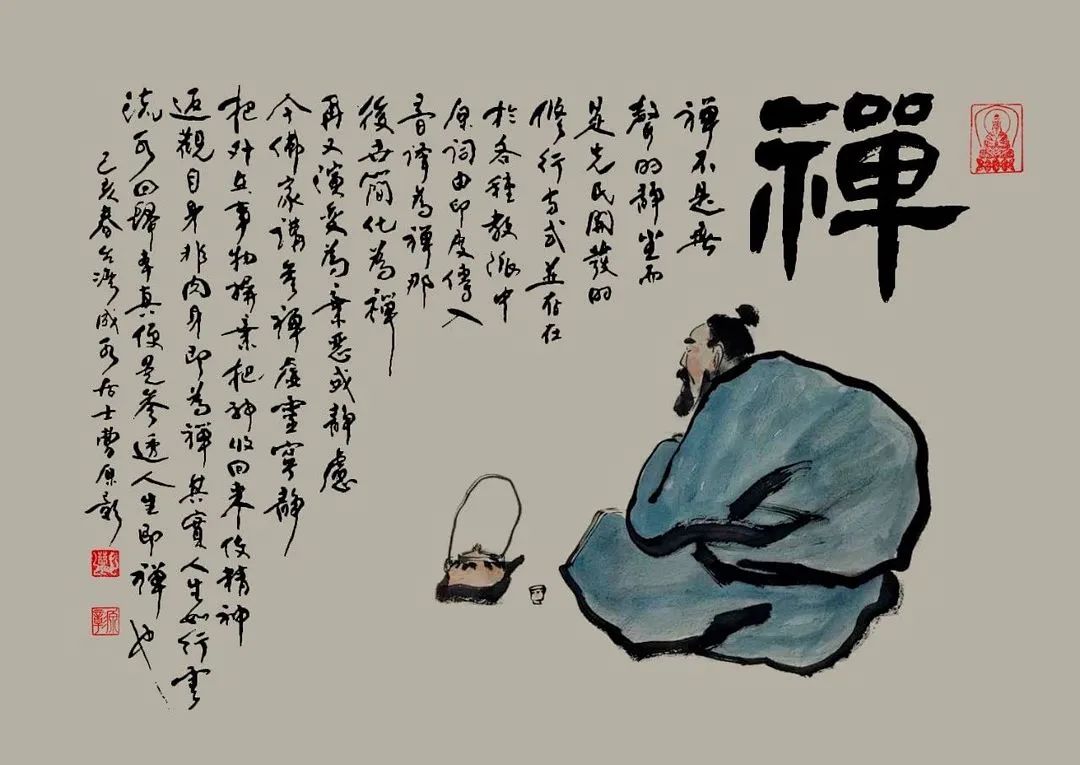 禪
禅不是無
聲的静坐而
是先民開發的
修行方式並存在
於各種教派中
原詞由印度傳入
音譯為禪那
後世簡化為禪
再又演变為棄惡或静慮
今佛家講參禪虛靈寧静
把外在事物摒棄把神收回来使精神
返觀自身非肉身即為禪其實人生如行雲
流水回歸本真便是參透人生即禪也
己亥春台湾成水居士曹原彰